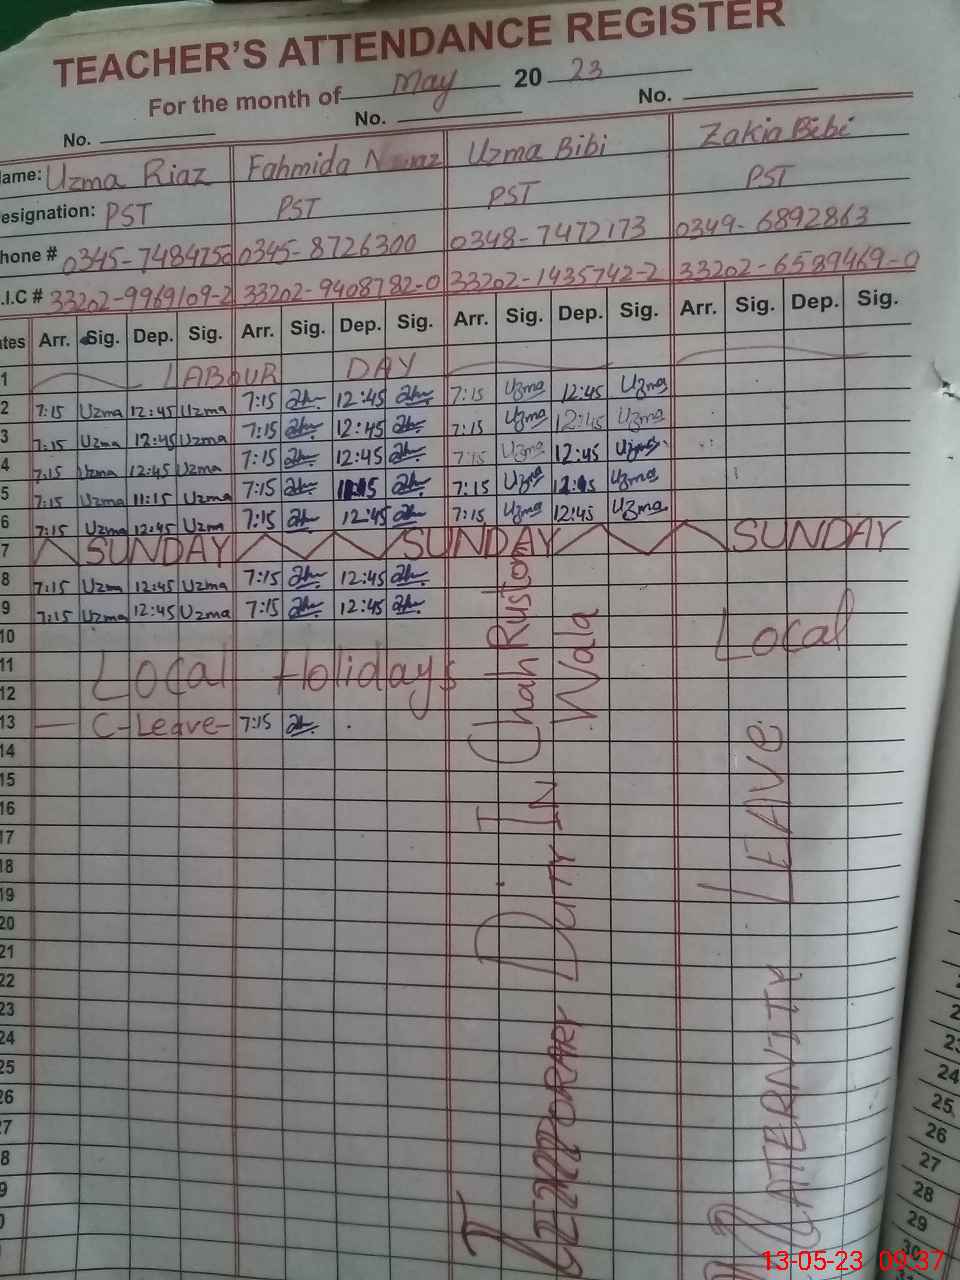 TEACHER'S ATTENDANCE REGISTER
For the month of May 20 23
No. No. No.
Name: Uzma Riaz Fahmida Nawaz Uzma Bibi Zakia Bibi
esignation: PST PST PST PST
hone # 0345-7484750 0345-8726300 0348-7472173 0349-6892863
.I.C # 33202-9969109-2 33202-9408782-0 33202-1435742-2 33202-6589469-0
tes Arr. Sig. Dep. Sig. Arr. Sig. Dep. Sig. Arr. Sig. Dep. Sig. Arr. Sig. Dep. Sig.
1 LABOUR DAY
2 7:15 Uzma 12:45 Uzma 7:15 12:45 7:15 Uzma 12:45 Uzma
3 7:15 Uzma 12:45 Uzma 7:15 12:45 7:15 Uzma 12:45 Uzma
4 7:15 Uzma 12:45 Uzma 7:15 12:45 7:15 Uzma 12:45 Uzma
5 7:15 Uzma 11:15 Uzma 7:15 11:15 7:15 Uzma Uzma
6 7:15 Uzma 12:45 Uzm 7:15 12:45 7:15 Uzma 12:45 Uzma
7 SUNDAY SUNDAY SUNDAY
8 7:15 Uzma 12:45 Uzma 7:15 12:45
9 7:15 Uzma 12:45 Uzma 7:15 12:45
10 Local
11 Local Holidays
12
13 C-Leave 7:15
14
15
16
17
18
19
20
21
22
23
24
25
26
27
8
9
0
TEMPPORARY DUTY IN Chah Rustom
Wala
MATERNITY LEAVE
2
23
24
25
26
27
28
29
30
13-05-23 09:37